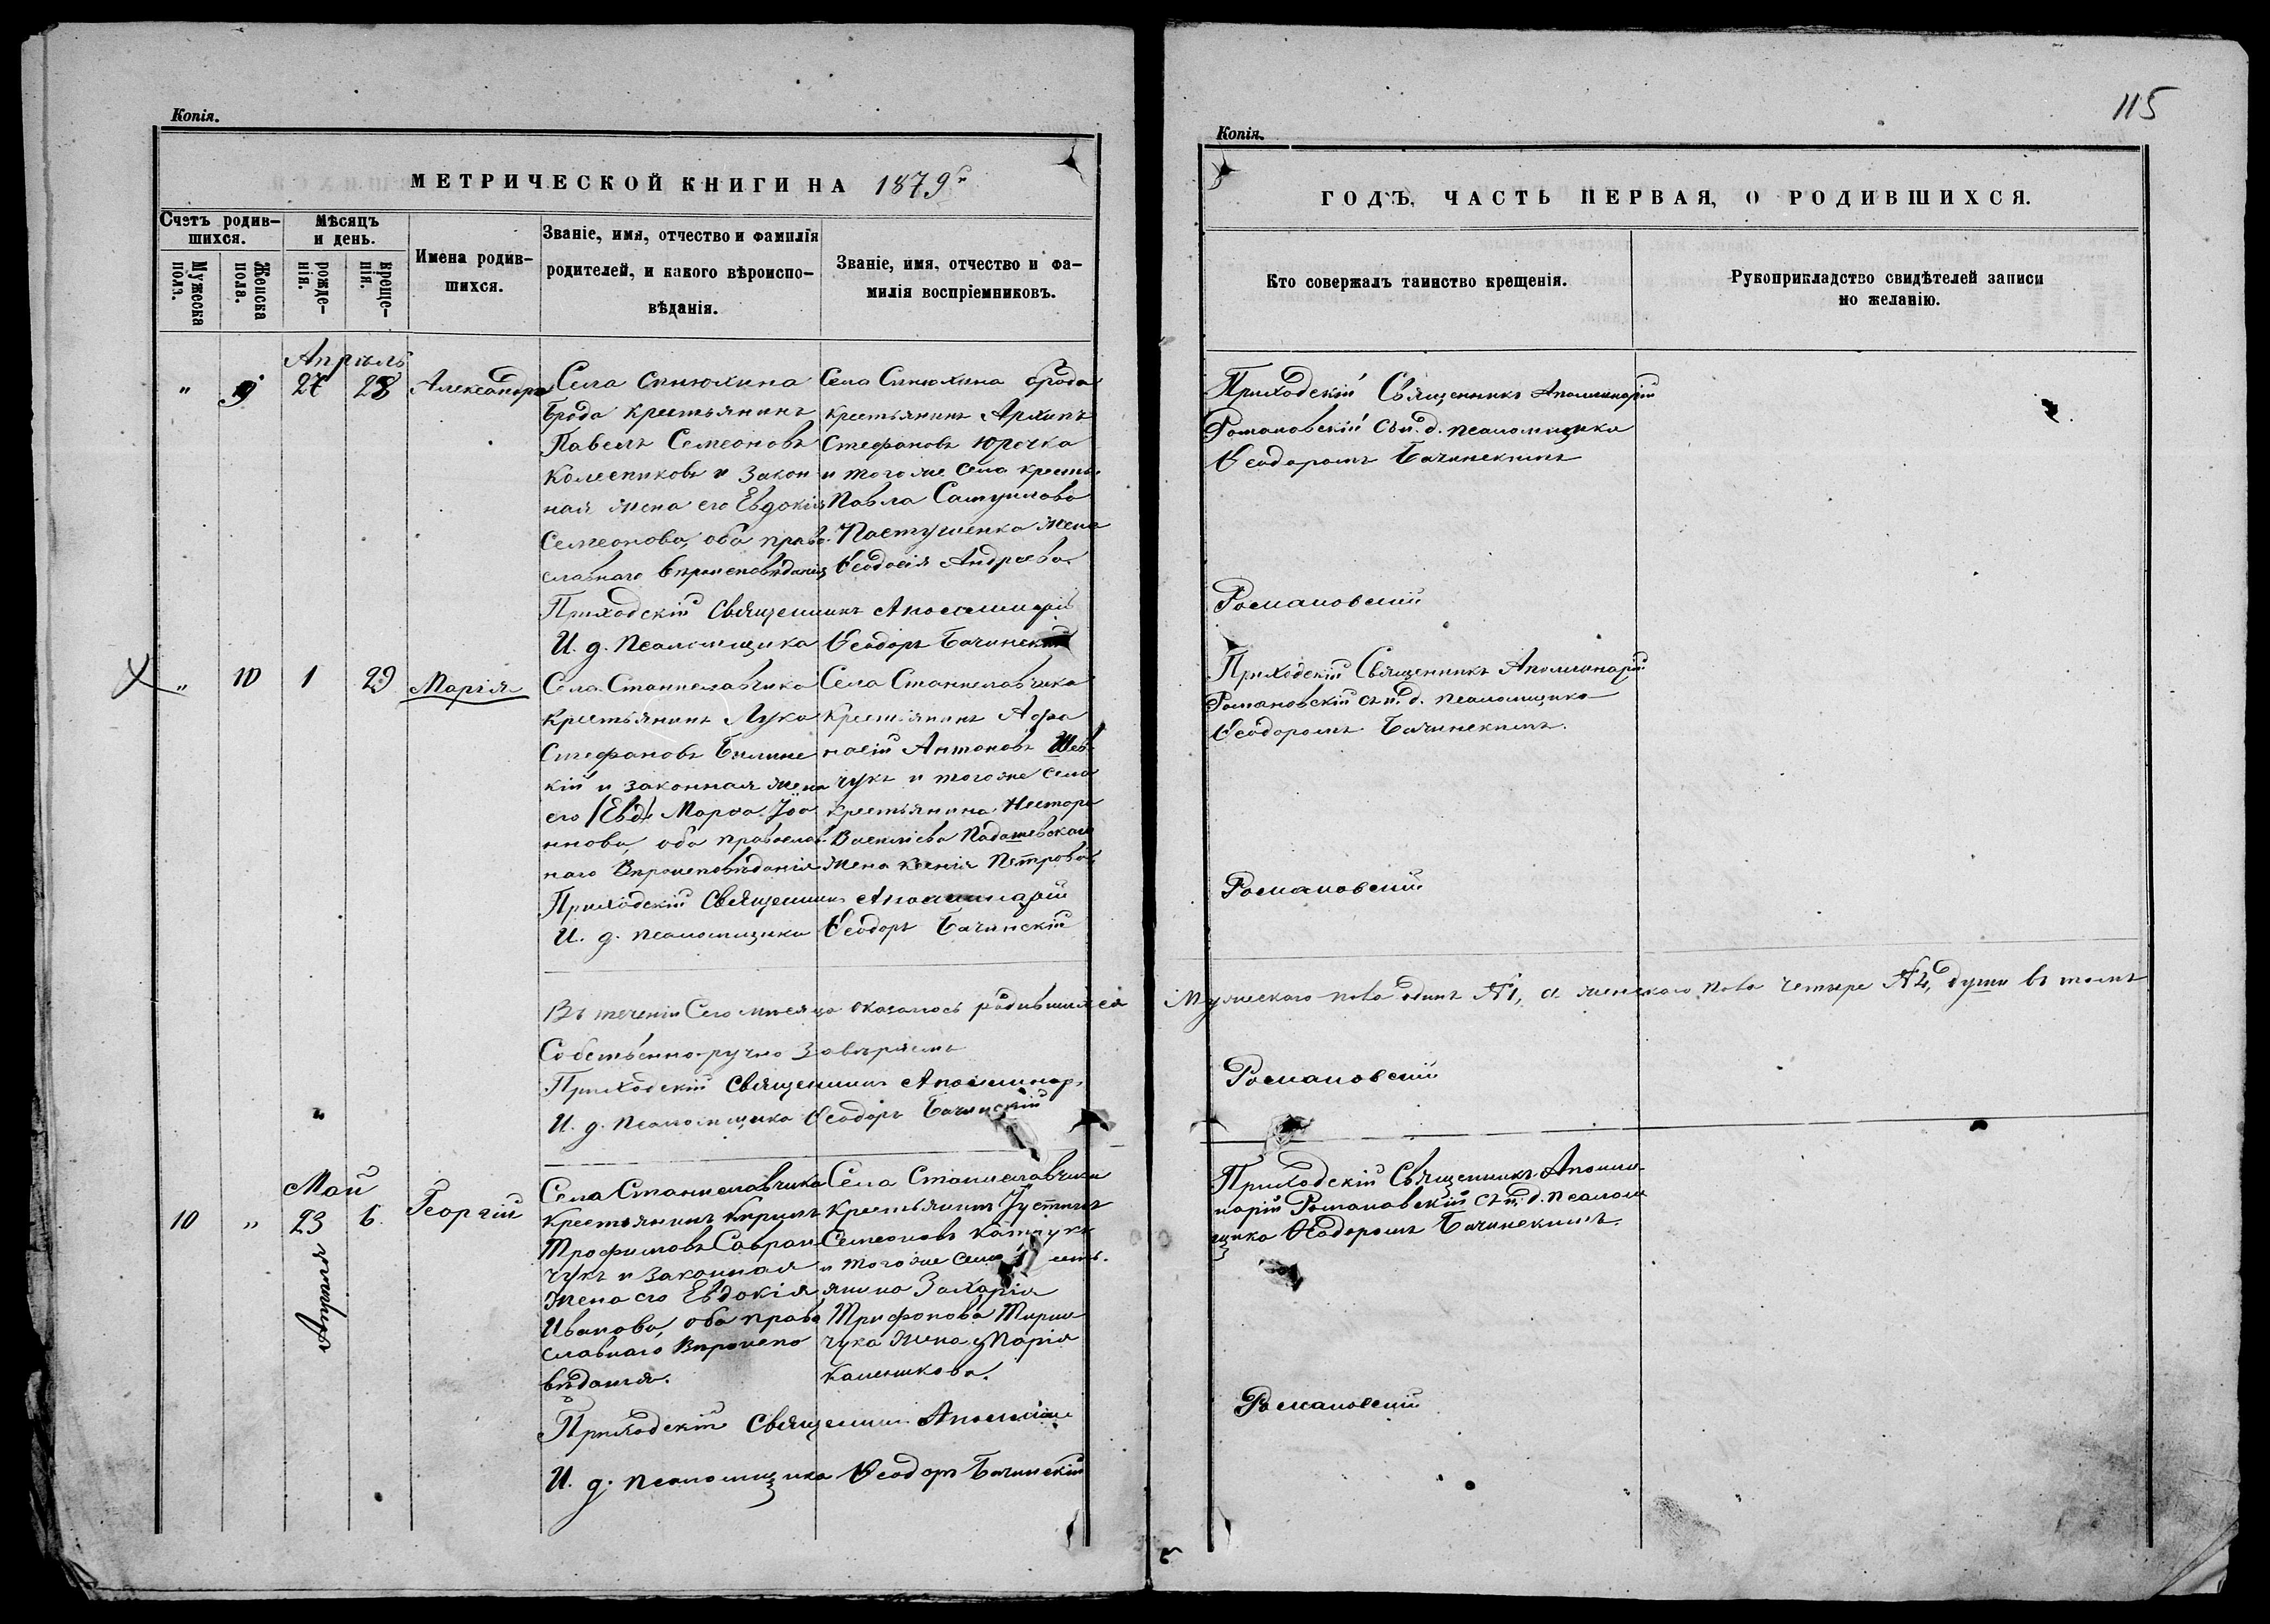 Копія.
МЕТРИЧЕСКОЙ КНИГИ НА 1879
Счетъ родив-
шихся.
Мужеска
пола.
Женска
пола.
Мѣсяцъ
и день.
рожде-
нія.
креще-
нія.
Имена родив-
шихся.
Званіе, имя, отчество и фамилія
родителей, и какого вѣроиспо-
вѣданія.
Званіе, имя, отчество и фа-
милія воспріемниковъ.
Апрѣль
" 9 27 28 Александра
Села Синюхина
брода крестьянинъ
Павелъ Семеоновъ
Колесниковъ и закон
ная жена его Евдокія
Семеонова, оба право
славнаго вѣроисповѣданія
Села Синюхина брода
крестьянинъ Архипъ
Стефановъ Юрочка
и того же села кресть.
Павла Самуилова
Пастушенка жена
Ѳеодосія Андреева.
Приходскій Священникъ Аполлинарій
И. д. Псаломщика Ѳеодоръ Бачинскій
" 10 1 29 Марія
Села Станиславчика
крестьянинъ Лука
Стефановъ Билин
кій и законная жена
его /Евд/ Марѳа Іоа
ннова, оба православ
наго Вѣроисповѣданія
Села Станиславчика
крестьянинъ Афа
насій Антоновъ Шев
чукъ и того же села
крестьянина Нестора
Василіева
жена Ксенія Петрова
Приходскій Священникъ Аполлинарій
И. д. Псаломщика Ѳеодоръ Бачинскій
Въ теченіи Сего мѣсяца оказалось родившихся
Собственно-ручно завѣряемъ
Приходскій Священникъ Аполлинар.
И. д. Псаломщика Ѳеодоръ Бачинскій
Май
10 " 23 6. Георгій
Села Станиславчика
крестьянинъ Кирилъ
Трофимовъ Савран
чукъ и законная
жена его Евдокія
Иванова, оба право
славнаго Вѣроиспо
вѣданія.
Села Станиславчика
крестьянинъ Іустинъ
Семеоновъ
и того же села
янина Захарія
Трифонова
чука жена Марія
Приходскій Священникъ
И. д. Псаломщика Ѳеодоръ Бачинскій
115
Копія.
ГОДЪ, ЧАСТЬ ПЕРВАЯ, О РОДИВШИХСЯ.
Кто совержалъ таинство крещенія.
Рукоприкладство свидѣтелей записи
по желанію.
Приходскій Священникъ Аполлинарій
Романовскій съ и. д. псаломщика
Ѳеодоромъ Бачинскимъ
Романовскій
Приходскій Священникъ Аполлинарій
Романовскій съ и. д. псаломщика
Ѳеодоромъ Бачинскимъ.
Романовскій
Мужескаго пола одинъ №1, а женскаго пола четыре №4, души въ томъ
Романовскій
Приходскій Священникъ Аполли-
нарій Романовскій съ и. д. псалом
щика Ѳеодоромъ Бачинскимъ.
Романовскій